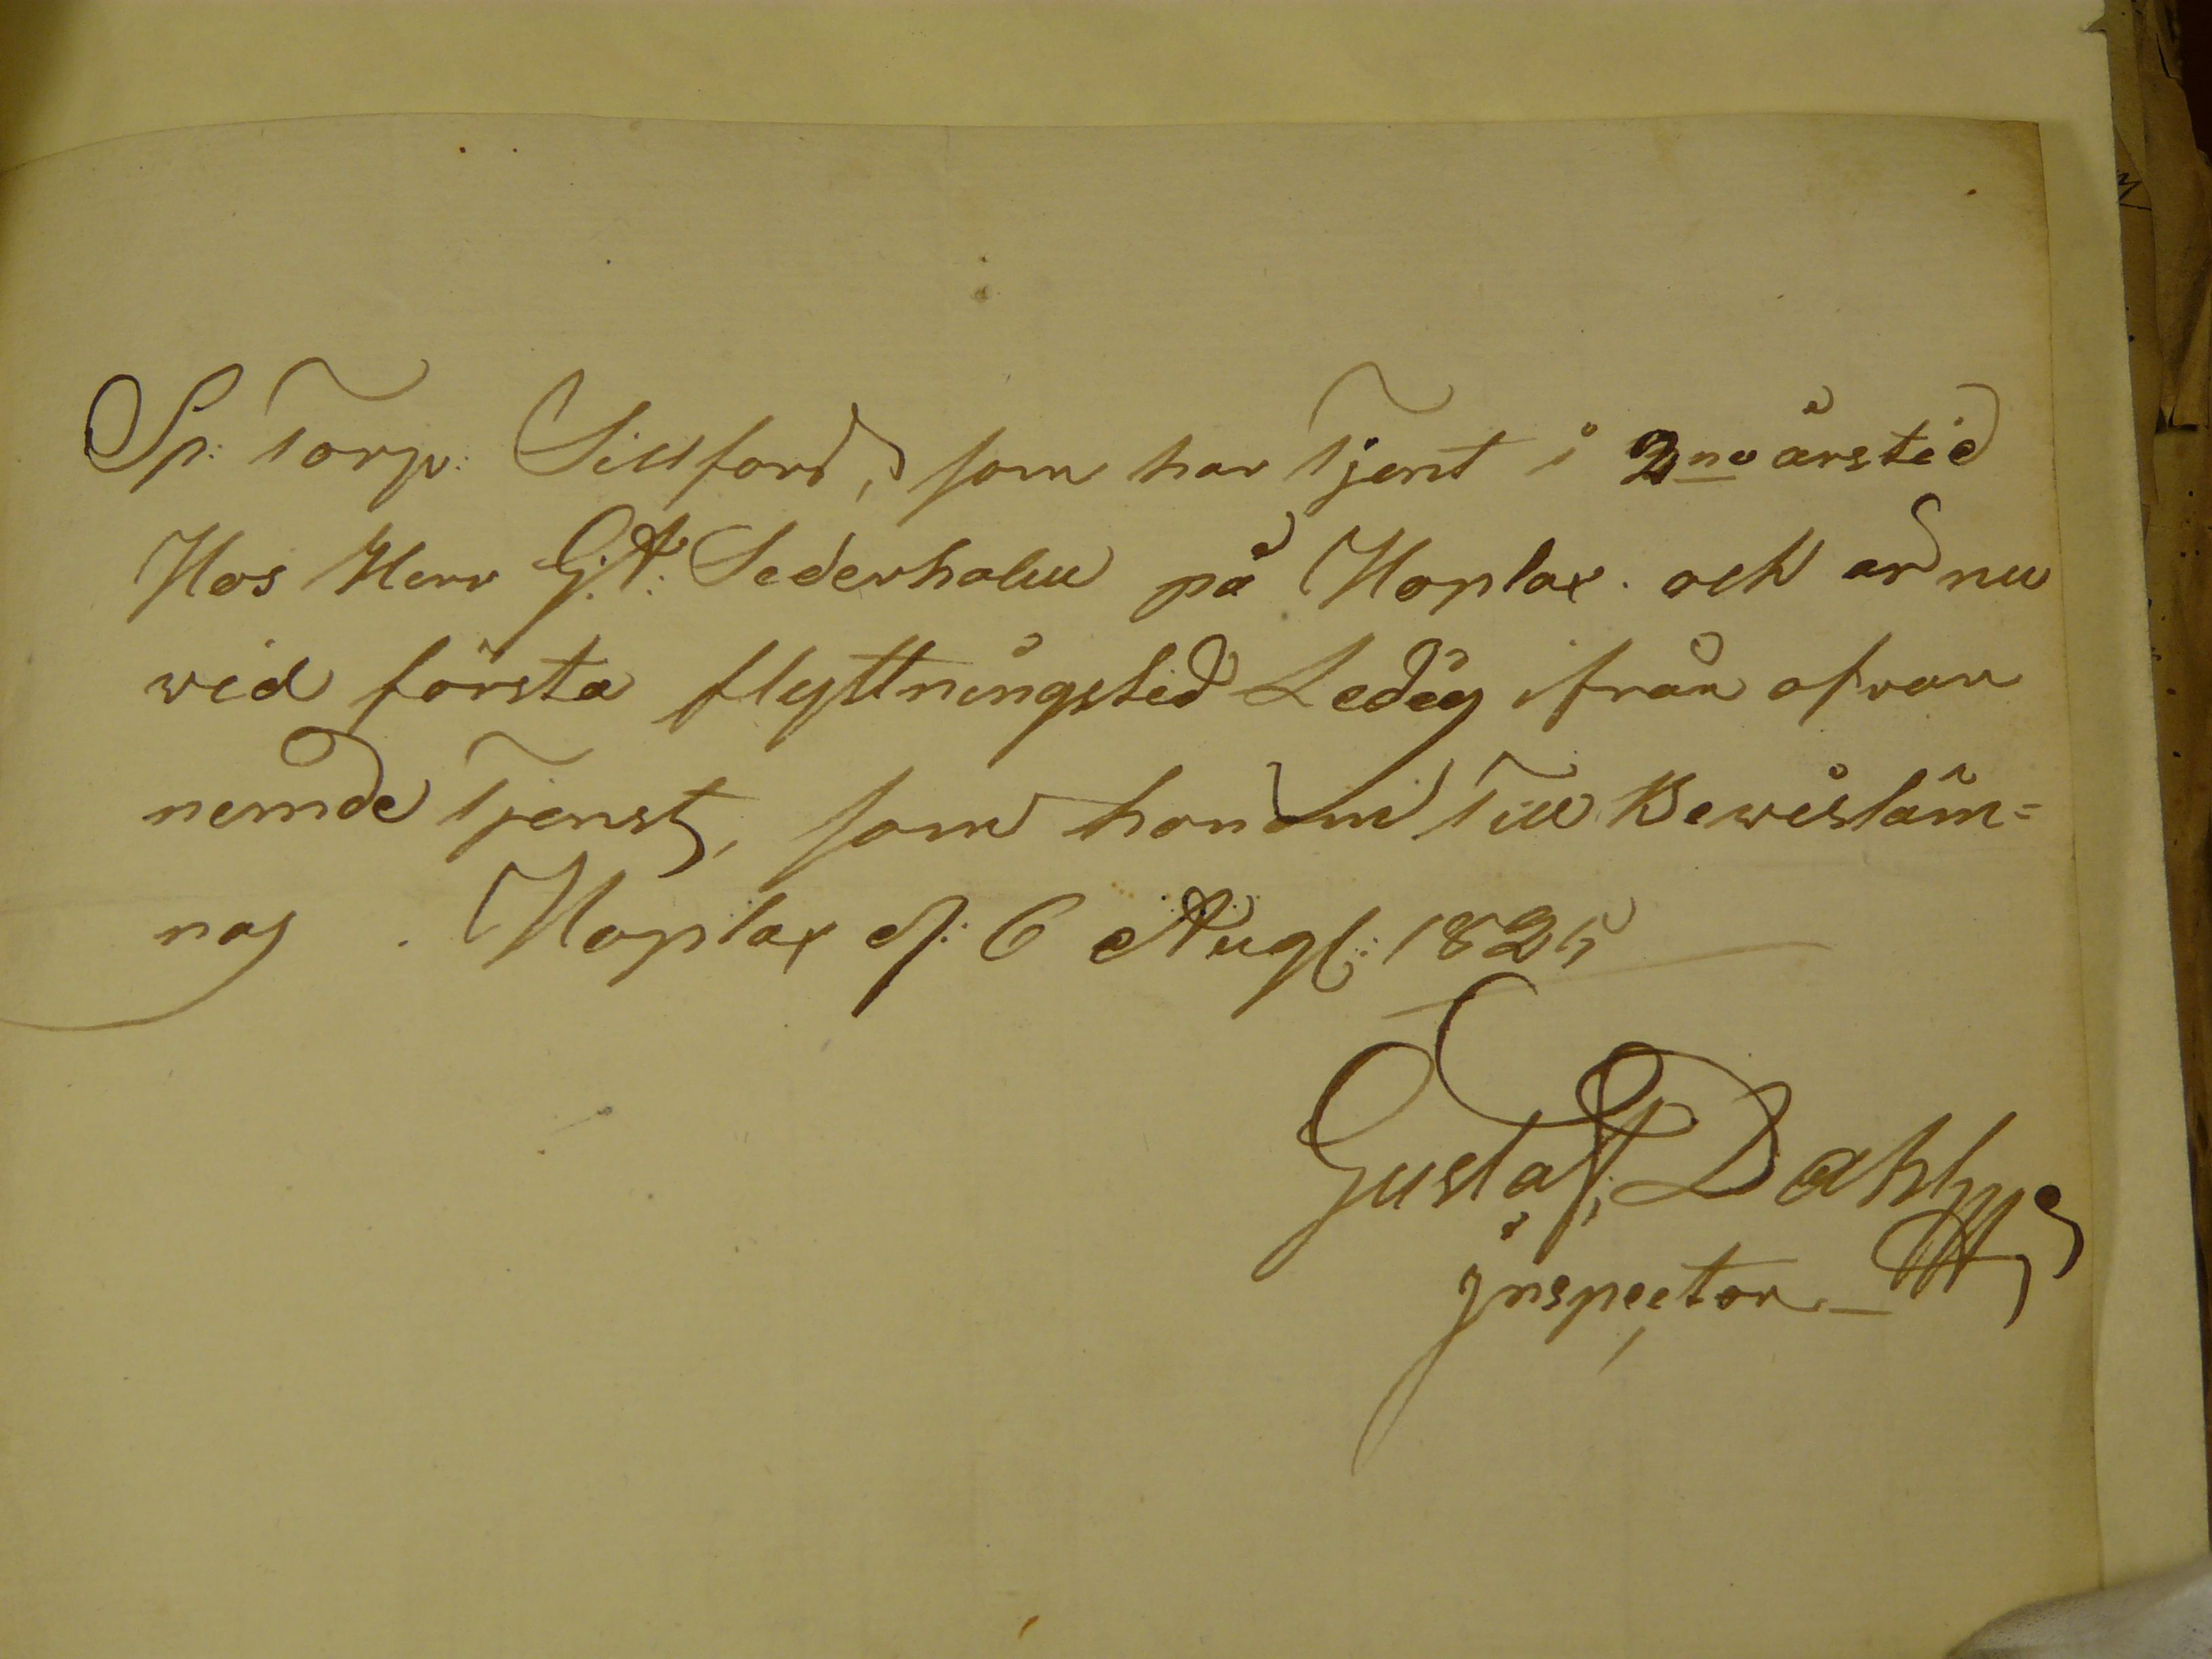 Sp: Torp: Sillford, som har Tjent i 2ne årstid
Hos Herr G. A. Sederholm på Hoplax och är nu
vid första flyttningstid Ledig ifrån ofvan
nemde Tjenst, som honom Till Bewis läm=
nas. Hoplax d: 6 Aug: 1825
Gustaf Dahlyn
Inspector